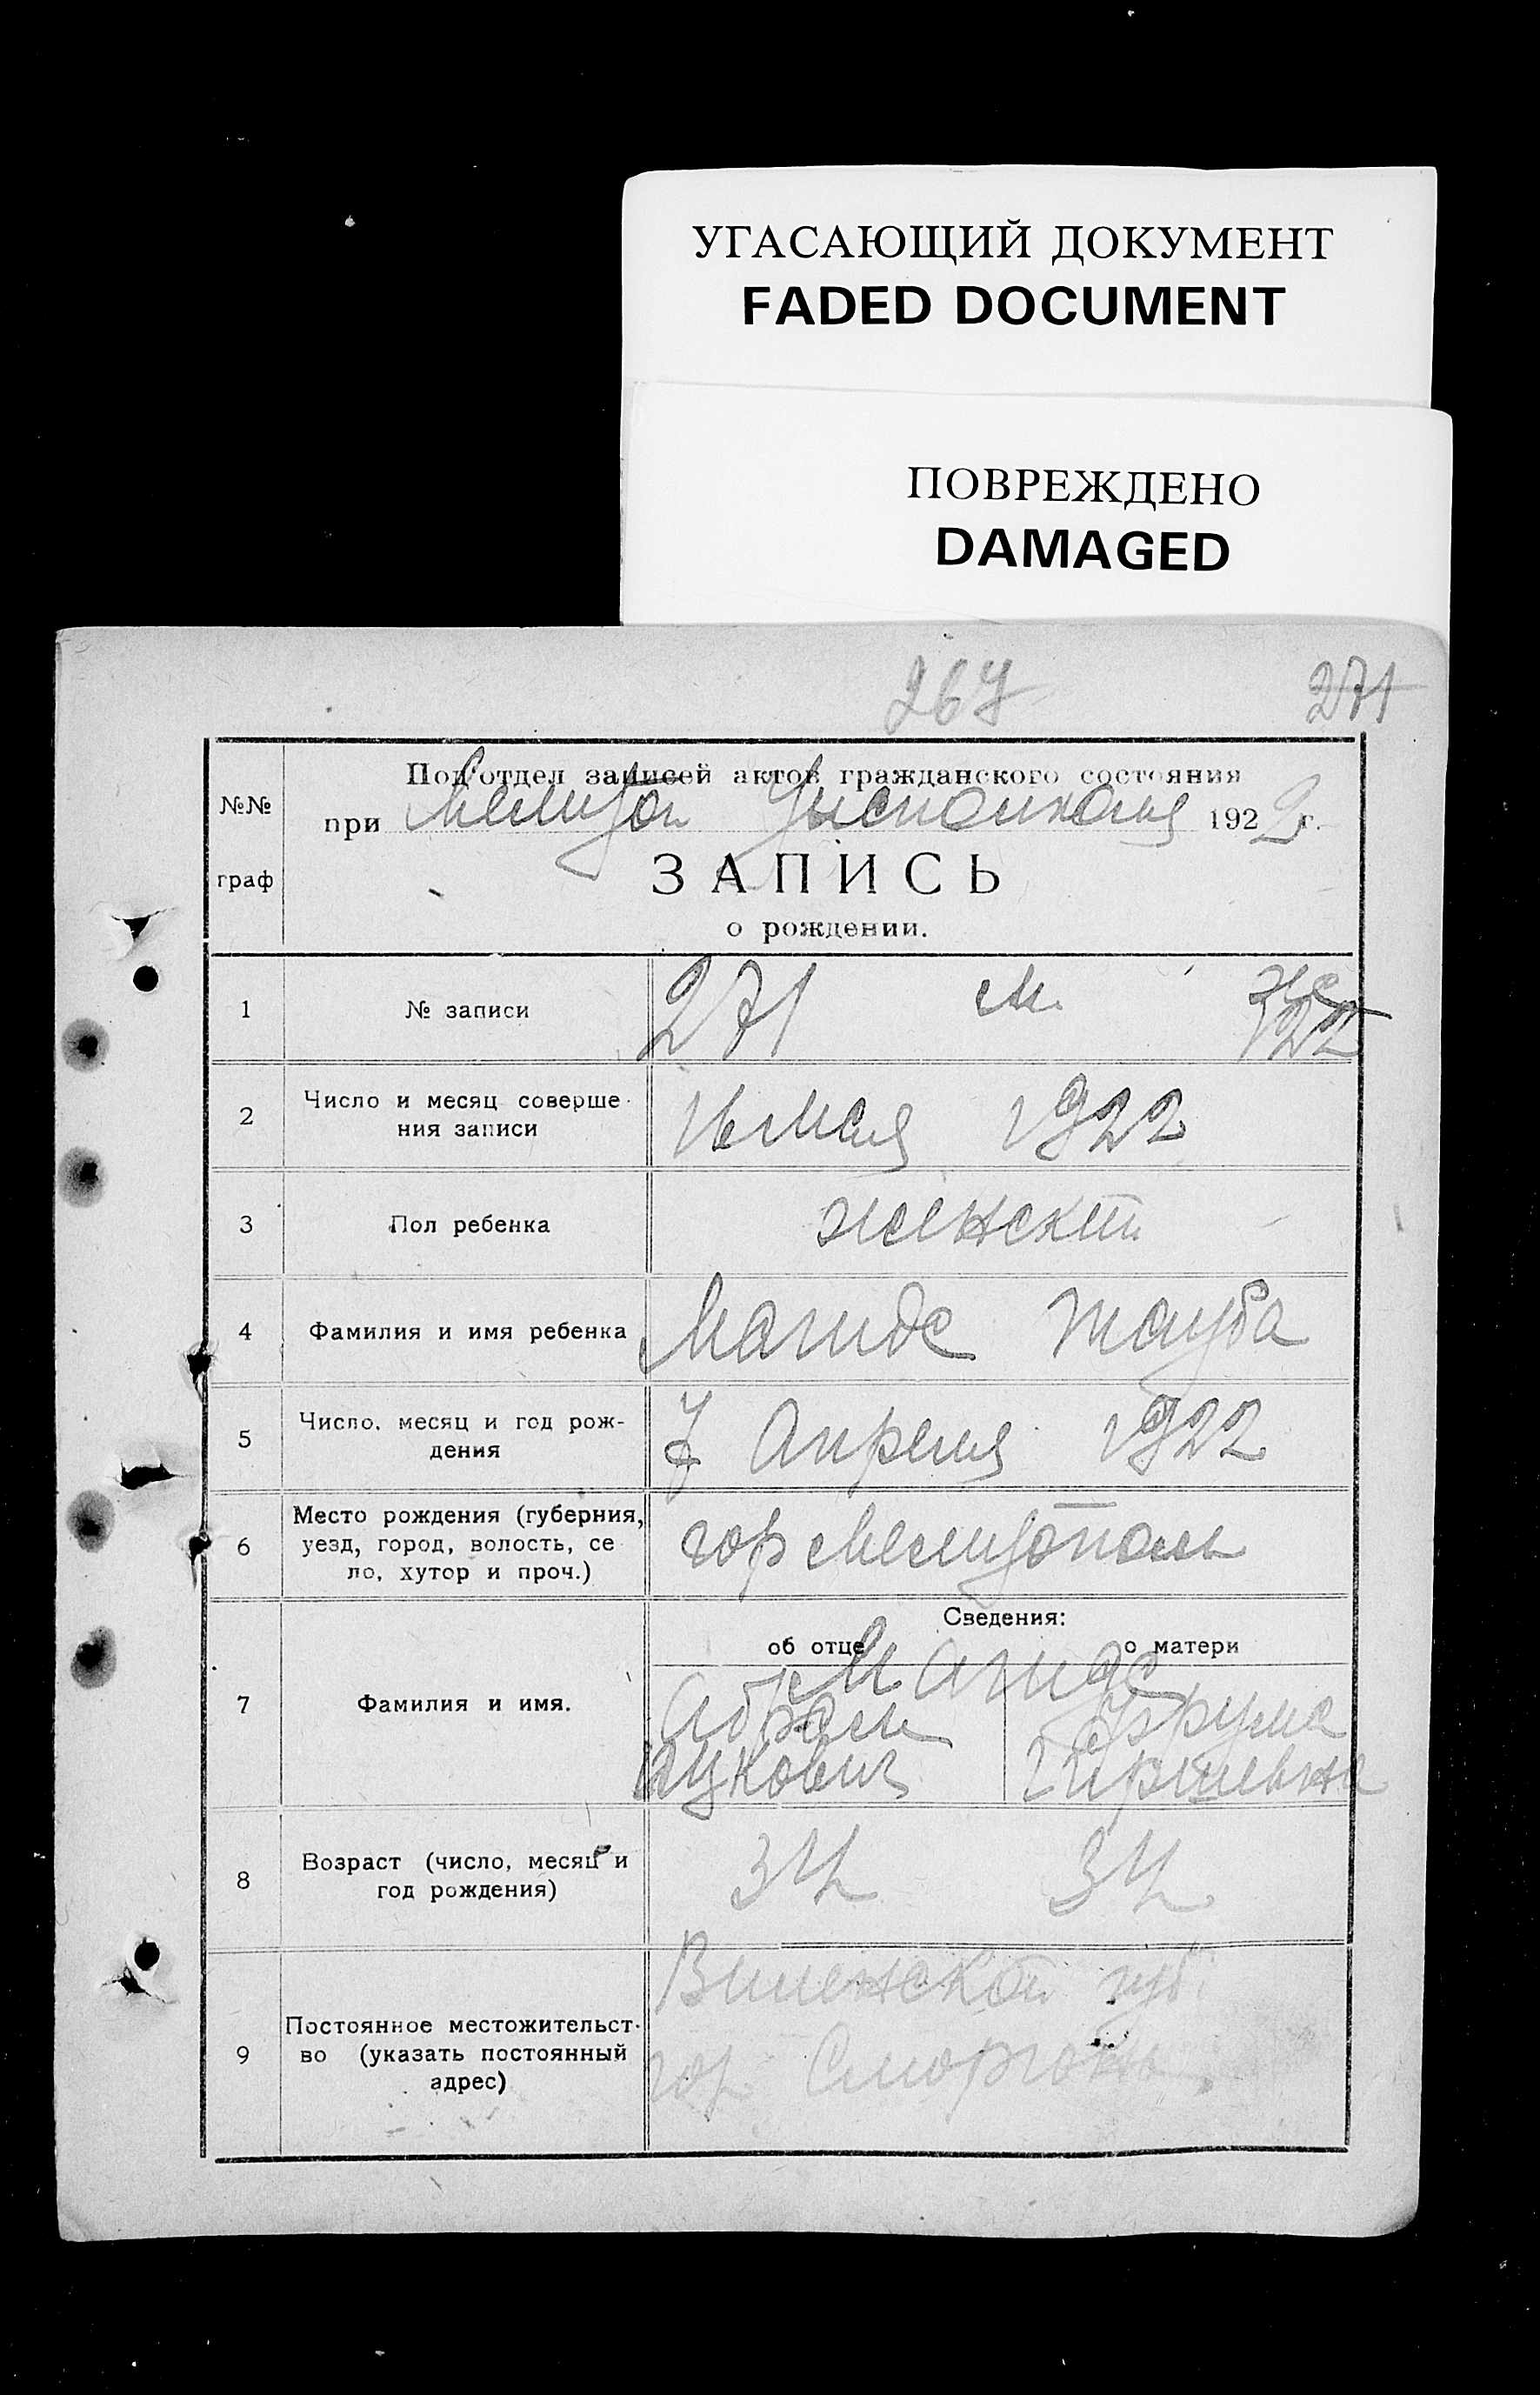 УГАСАЮЩИЙ ДОКУМЕНТ
FADED DOCUMENT
ПОВРЕЖДЕНО
DAMAGED
267 271
№№ граф
Подотдел записей актов гражданского состояния
при Мелитоп 1922 г.
ЗАПИСЬ
о рождении.
1 № записи 271 м. ж
322
2 Число и месяц соверше-
ния записи 16 мая 1922
3 Пол ребенка женский
4 Фамилия и имя ребенка Магиде Тауба
5 Число, месяц и год рож-
дения 7 Апреля 1922
6 Место рождения (губерния,
уезд, город, волость, се
ло, хутор и проч.) гор Мелитополь
Сведения:
об отце о матери
Магиде
7 Фамилия и имя. Абрам Фрума
Ицкович Гиршевна
8 Возраст (число, месяц и
год рождения) 34 34
Виленской губ.
9 Постоянное местожительст-
во (указать постоянный
адрес) гор Сморгонь